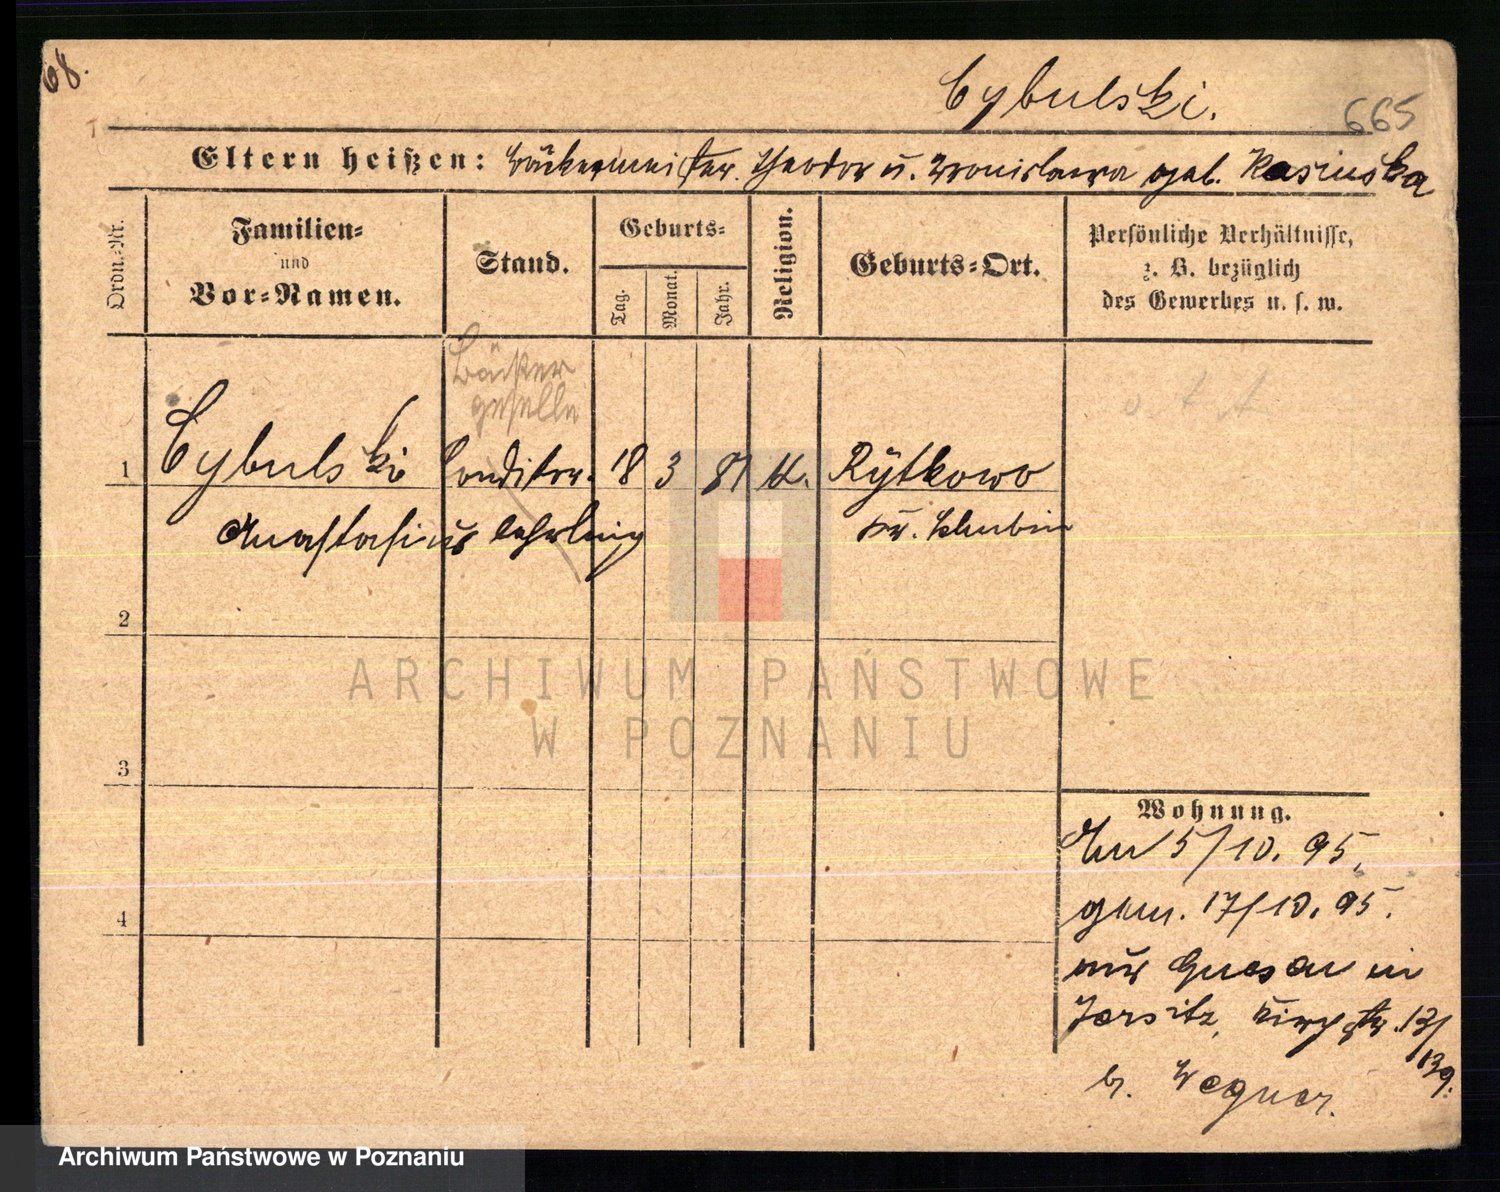 68.
Cybulski.
665
Eltern heißen: Bäckermeister Theodor u. Bronislawa geb. Kasinska
Ordn.-Nr.
Familien-
und
Vor-Namen.
Stand.
Geburts-
Tag.
Monat.
Jahr.
Religion.
Geburts-Ort.
Persönliche Verhältnisse,
z. B. bezüglich
des Gewerbes u. s. w.
Bäcker
geselle
1 Cybulski Conditor 18 3 81 K. Rytkowo
Anastasius lehrling Kr. Schubin
2
3
4
Wohnung.
An 5/10. 95.
gem. 17/10. 95.
aus Gnesen in
Jersitz, Kirchstr. 13/
139.
b. Wegner.
ARCHIWUM PAŃSTWOWE
W POZNANIU
Archiwum Państwowe w Poznaniu